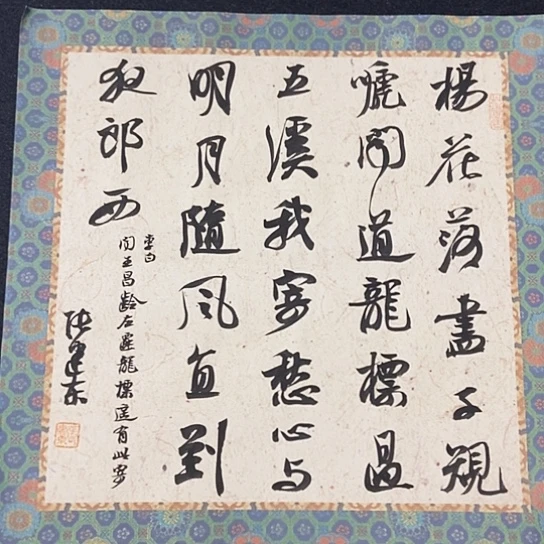 楊花落盡子規
嗁聞道龍標過
五溪我寄愁心与
明月隨風直到
夜郎西
李白
聞王昌齡左遷龍標遥有此寄
张建东